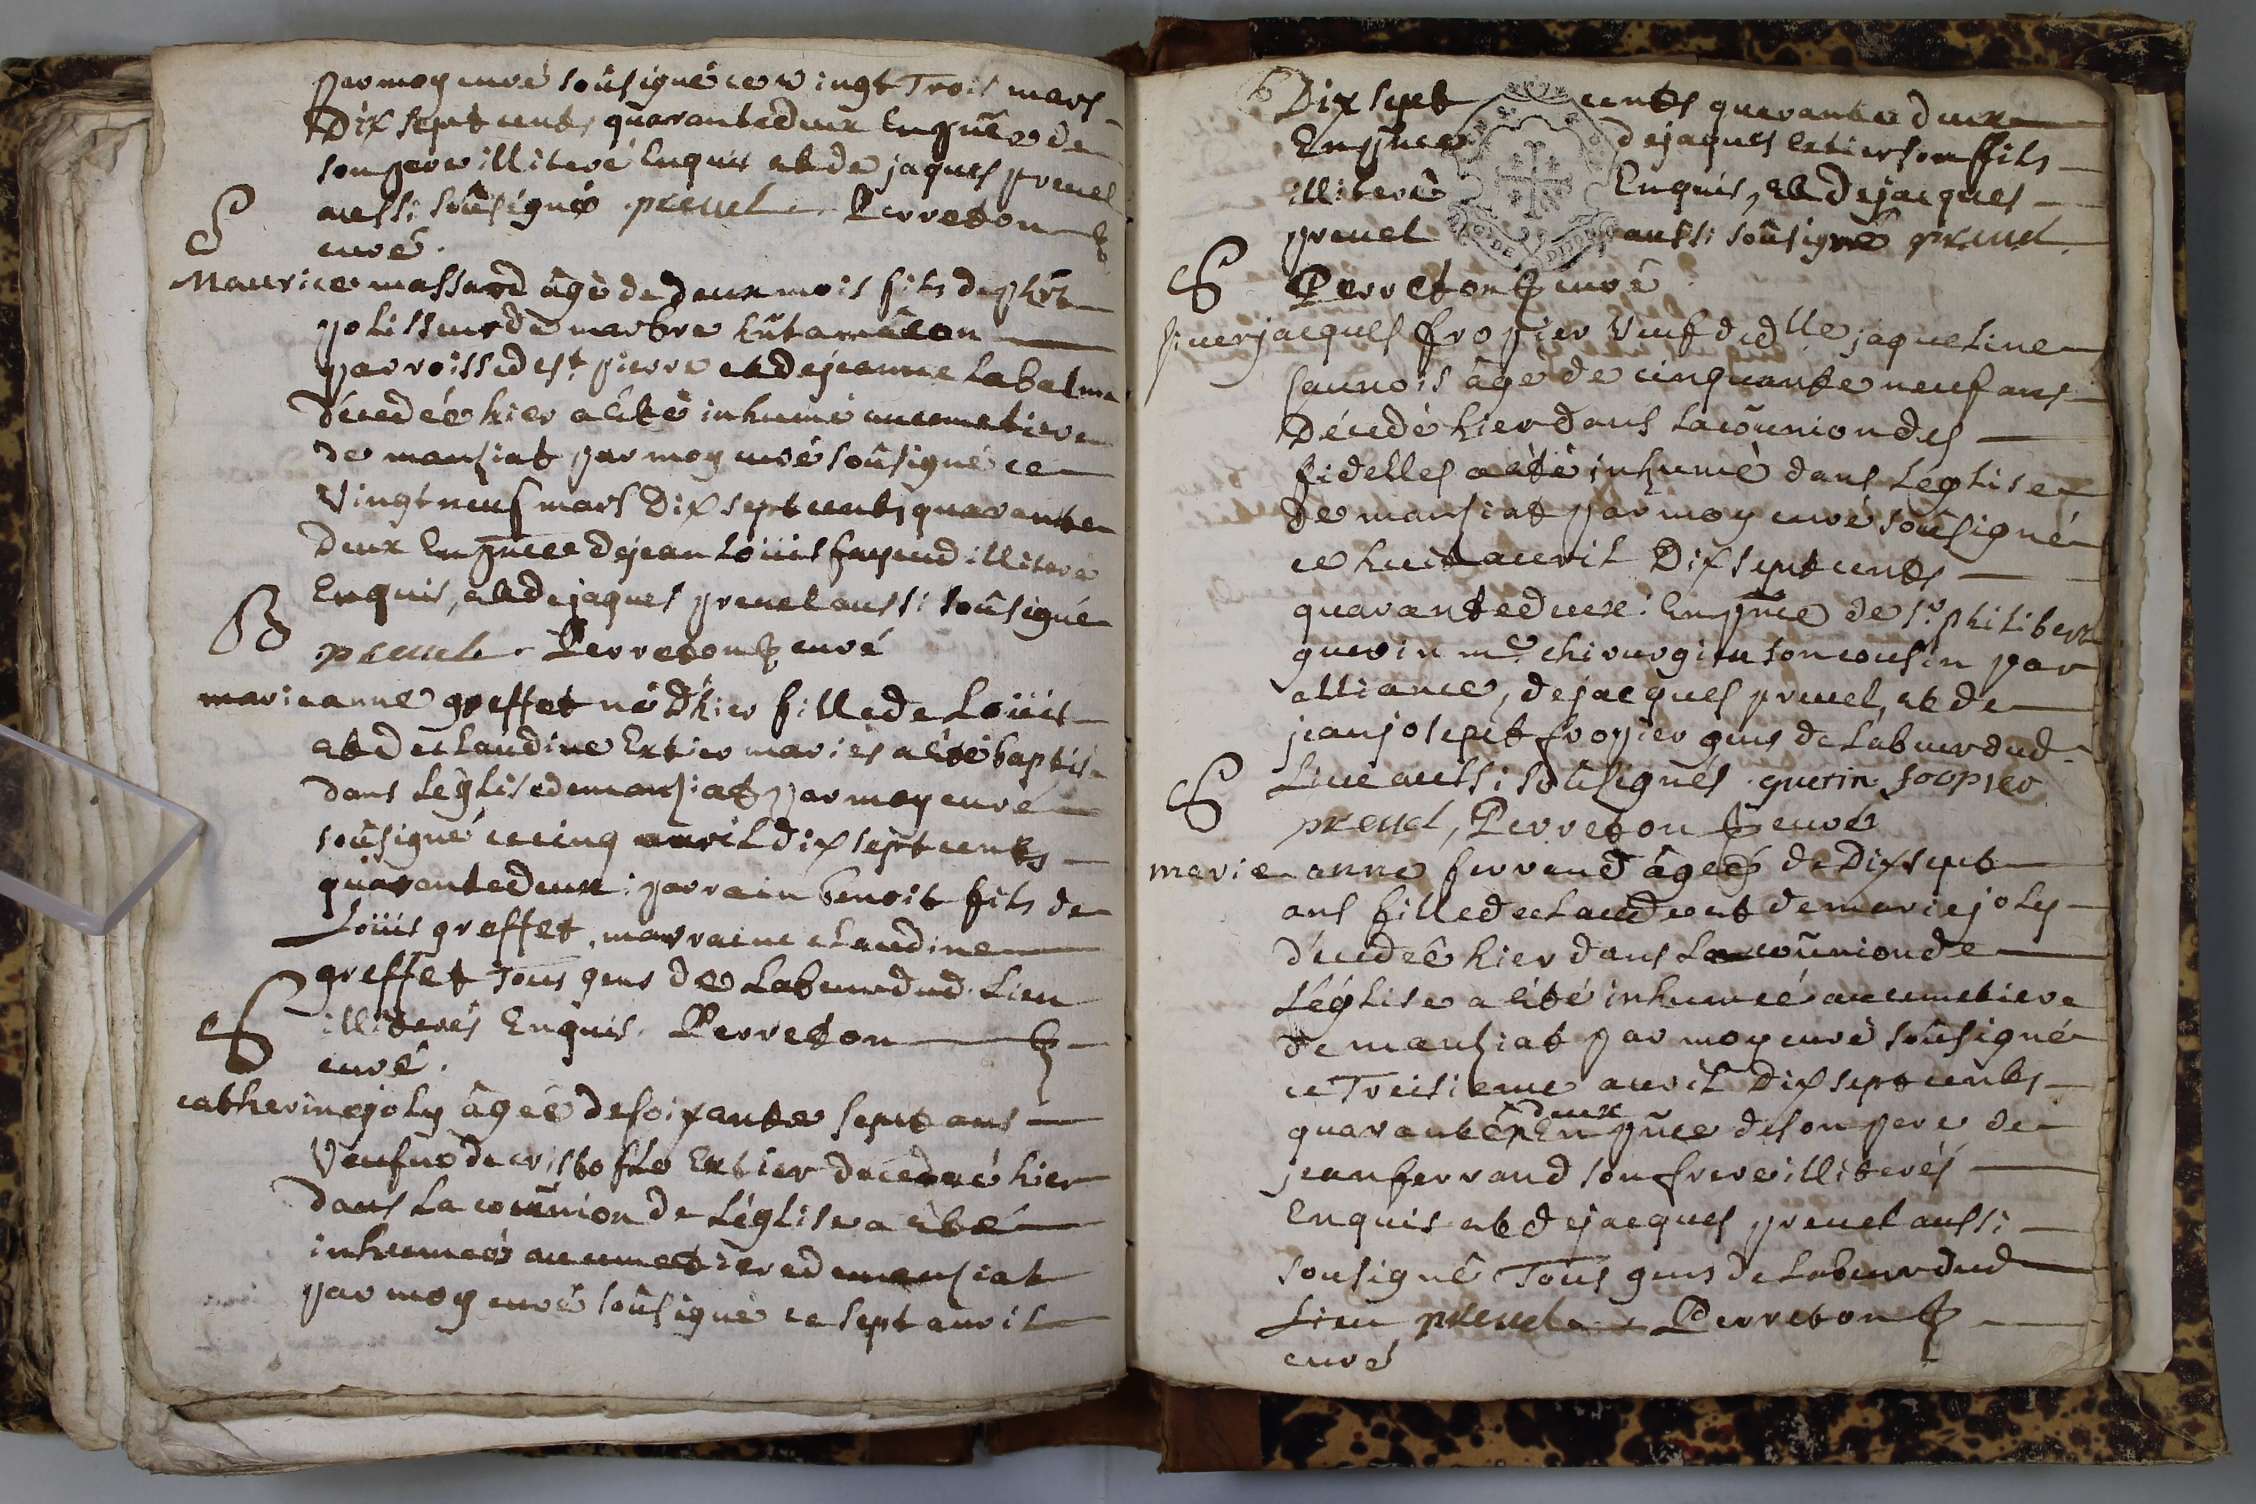 par moy curé soûsigné ce vingt Trois mars
Dix sept cents quarante deux En pñce de
son pere illiteré Enquis et de jaques preuel
S
aussi soûsigné preuel Perreton
curé.
Maurice massard âgé de deux mois fils de phẽrt
polisseur de marbre
parroisse de st pierre et de jeanne Labalme
décedée hier a êté inhumé au cemetiere
de manziat par moy curé soûsigné ce
Vingt neuf mars Dix sept cents quarante
deux En pñce de jean Loüis fayend illiteré
Enquis, et de jaques preuel aussi soûsigné
B
preuel Perreton curé
marie anne greffet né D'hier fille de Loüis
et de claudine Ertier mariés a êté baptisé
dans L'église de manziat par moy curé
soûsigné ce cinq auril dix sept cents
quarante deux : parrain benoit fils de
Loüis greffet, marraine claudine
greffet Tous gens de Labeur dud. Lieu
S
illiterés Enquis. Perreton
curé.
catherine joly âgée de soixante sept ans
Veufue de cristofle Ertier décedeé hier
dans La coṁunion de L'église a êté
inhumeé au cemetiere de manziat
par moy curé soûsigné ce sept auril
6
Dix sept cents quarante deux
En pñce de jaques Ertier son fils
illiteré Enquis, et de jacques
preuel aussi soûsigné preuel
S
Perreton curé
sieur jacques fropier Veuf de dlle jaqueline
saunois âgé de cinquante neuf ans
Décedé hier dans La coṁunion des
fidelles a êté inhumé dans L'église
de manziat par moy curé soûsigné
ce huit auril Dix sept cents
quarante deux : En pñce de sr. philibert
guerin me. chirurgien son cousin par
alliance, de jacques preuel, et de
jean josept fropier gens de Labeur dud.
S
Lieu aussi soûsignés. guerin fropier
preuel, Perreton curé
marie anne ferrand âgeé de Dix sept
ans fille de claude et de marie joly
décedeé hier dans La coṁunion de
L'église a êté inhumeé au cemetiere
de manziat par moy curé soûsigné
ce Treisieme auril dix sept cents
deux
quarante En pñce de son pere de
jean ferrand son frere illiterés
Enquis et de jacques preuel aussi
sousigné Tous gens de Labeur dud
Lieu preuel Perreton
curé